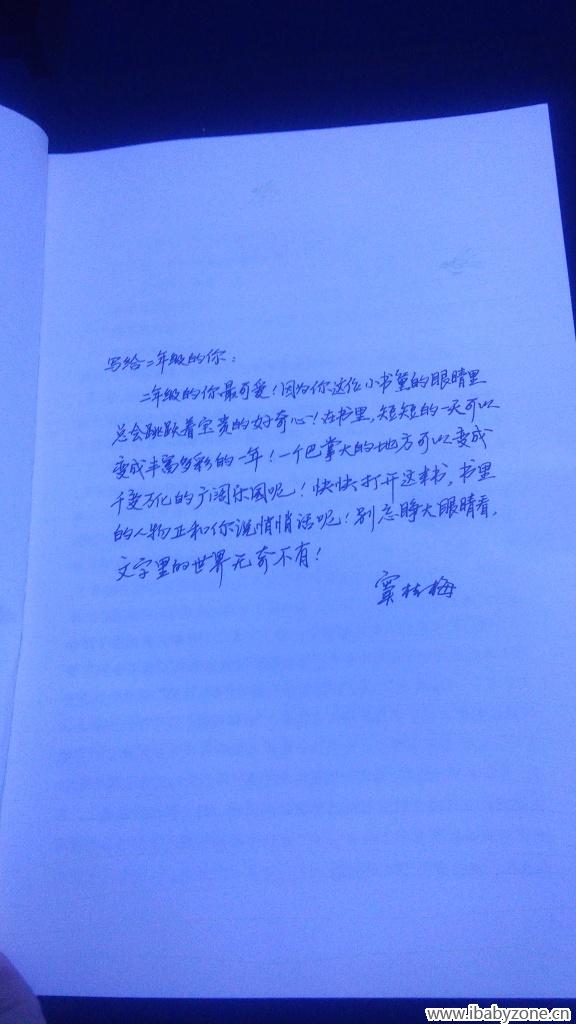 写给二年级的你：
二年级的你最可爱！因为你这位小书童的眼睛里
总会跳跃着宝贵的好奇心！在书里，短短的一天可以
变成丰富多彩的一年！一个巴掌大的地方可以变成
千变万化的广阔乐园呢！快快打开这本书，书里
的人物正和你说悄悄话呢！别忘睁大眼睛看，
文字里的世界无奇不有！
窦桂梅
www.ibabyzone.cn